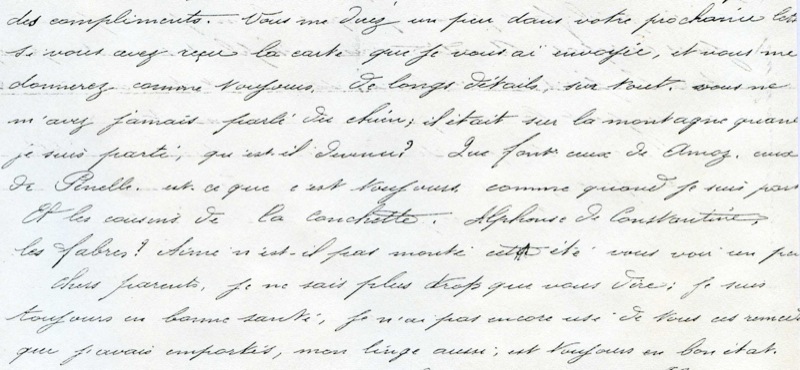 des compliments. Vous me direz un peu dans votre prochaine lett
si vous avez reçu la carte que je vous ai envoyée, et vous me
donnerez comme toujours, de longs détails, sur tout. vous ne
m'avez jamais parlé du chien; il était sur la montagne quand
je suis parti, qu'est-il devenu? Que font ceux de Amoz. ceux
de Penelle. est ce que c'est toujours comme quand je suis part
Et les cousins de la Conchette. Alphonse de Constantine,
les fabres? Aimé n'est-il pas monté cet été vous voir un peu
Chers parents, je ne sais plus trop que vous dire; je suis
toujours en bonne santé, je n'ai pas encore usé de tous ces remèd
que j'avais emportés, mon linge aussi; est toujours en bon état.